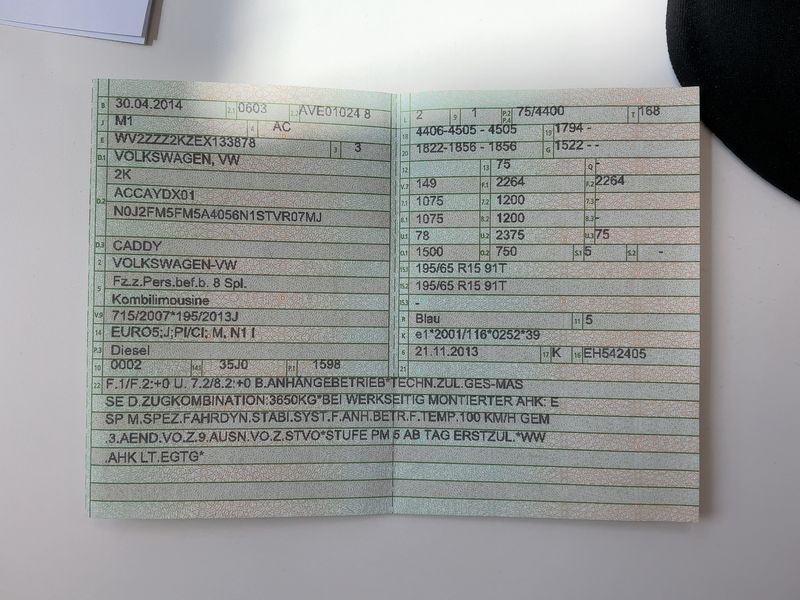 B 30.04.2014 2.1 0603 AVE01024 8
J M1 4 AC
E WV2ZZZ2KZEX133878 3 3
D.1 VOLKSWAGEN, VW
2K
D.2 ACCAYDX01
N0J2FM5FM5A4056N1STVR07MJ
D.3 CADDY
2 VOLKSWAGEN-VW
5 Fz.z.Pers.bef.b. 8 Spl.
Kombilimousine
V.9 715/2007*195/2013J
14 EURO5;J;PI/CI; M, N1 I
P.3 Diesel
10 0002 14.1 35J0 P.1 1598
L 2 9 1 P.2 P.4 75/4400 T 168
18 4406-4505 - 4505 19 1794 -
20 1822-1856 - 1856 G 1522 - -
12 - 13 75 Q -
V.7 149 F.1 2264 F.2 2264
7.1 1075 7.2 1200 7.3 -
8.1 1075 8.2 1200 8.3 -
U.1 78 U.2 2375 U.3 75
O.1 1500 O.2 750 S.1 5 S.2 -
15.1 195/65 R15 91T
15.2 195/65 R15 91T
15.3 -
R Blau 11 5
K e1*2001/116*0252*39
6 21.11.2013 17 K 16 EH542405
21
22 F.1/F.2:+0 U. 7.2/8.2:+0 B.ANHÄNGEBETRIEB*TECHN.ZUL.GES-MAS
SE D.ZUGKOMBINATION:3650KG*BEI WERKSEITIG MONTIERTER AHK: E
SP M.SPEZ.FAHRDYN.STABI.SYST.F.ANH.BETR.F.TEMP.100 KM/H GEM
.3.AEND.VO.Z.9.AUSN.VO.Z.STVO*STUFE PM 5 AB TAG ERSTZUL.*WW
.AHK LT.EGTG*